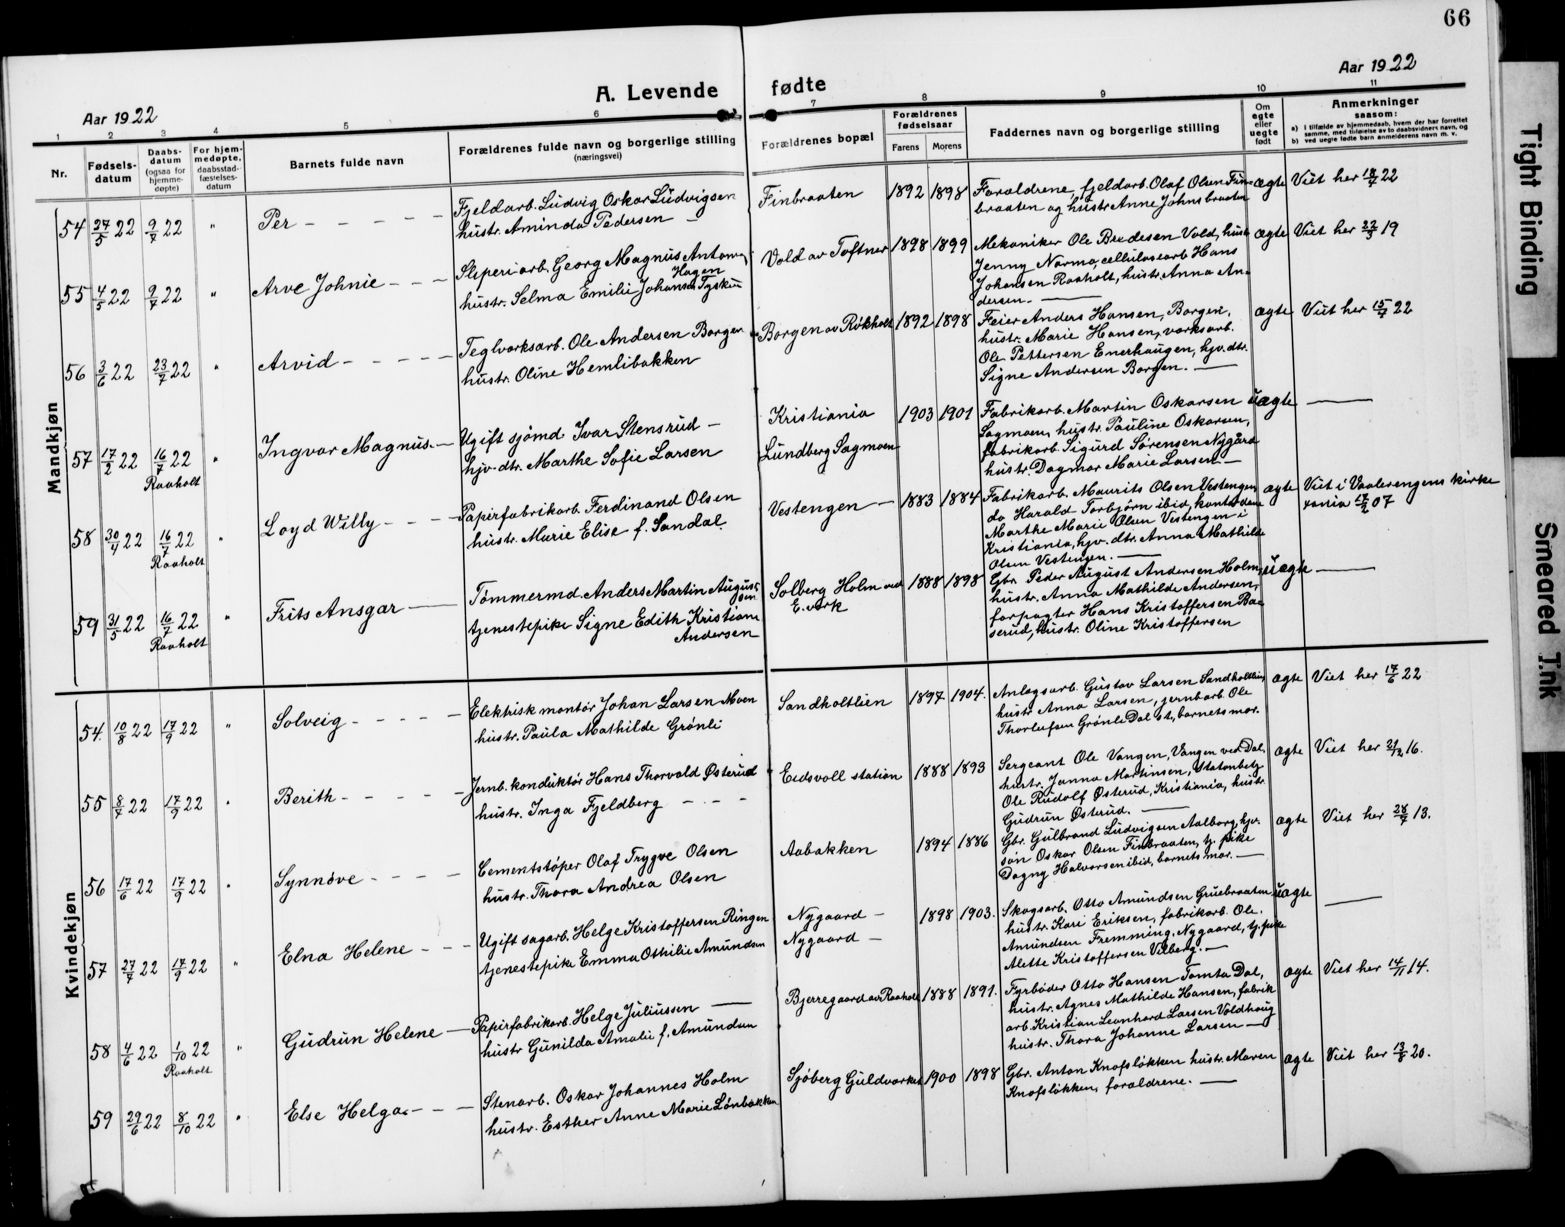 66
Aar 1922
A. Levende
fødte
Aar 1922
1 2 3 4 5 6 7 8 9 10 11
Nr.
Fødsels-
datum
Daabs-
datum
(ogsaa for
hjemme-
døpte)
For hjem-
medøpte,
daabsstad-
fæstelses-
datum
Barnets fulde navn
Forældrenes fulde navn og borgerlige stilling
(næringsvei)
Forældrenes bopæl
Forældrenes
fødselsaar
Farens Morens
Faddernes navn og borgerlige stilling
Om
egte
eller
uegte
født
Anmerkninger
saasom:
a) I tilfælde av hjemmedaab, hvem der har forrettet
samme, med tilføielse av to daabsvidners navn, og
b) ved uegte fødte barn anmelderens navn m. v.
Mandkjøn
54 27/5 22 9/7 22 " Per
Fjeldarb. Ludvig Oskar Ludvigsen
hustr. Aminda Pedersen
Finbraaten 1892 1898
Forældrene, fjeldarb. Olaf Olsen Fin-
braaten og hustr Anne Johnsbraaten
ægte Viet her 18/7 22
55 4/5 22 9/7 22 " Arve Johnie
Sliperiarb. Georg Magnus Antons.
Hagen
hustr. Selma Emilie Johansen
Vold av Toftner 1898 1899
Mekaniker Ole Brede­sen Vold, hustr
Jenny Norma, cellulosearb Hans
Johansen Raaholt, hustr. Anna An-
dersen.
ægte Viet her 22/3 19
56 3/6 22 23/7 22 " Arvid
Teglverksarb. Ole Andersen Borgen
hustr. Oline Hemlibakken
Borgen av Røkholt 1892 1898
Feier Anders Hansen, Borgen,
hustr. Marie Hansen, verksarb.
Ole Pettersen Enerhaugen, hjv. dtr.
Signe Andersen Borgen.
ægte Viet her 15/7 22
57 17/2 22 16/7 22 " Ingvar Magnus.
Raaholt
Ugift sjømd Ivar Stensrud
hjv. dtr. Marthe Sofie Larsen
Kristiania
Lundberg Sagmoen
1903 1901
Fabrikarb. Martin Oskarsen
Sagmoen, hustr. Pauline Oskarsen,
fabrikarb. Sigurd Sørensen Nygård
hustr. Dagmar Marie Larsen
uægte
58 30/4 22 16/7 22 " Loyd Willy
Raaholt
Papirfabrikarb. Ferdinand Olsen
hustr. Marie Elise f. Sandal.
Vestengen 1883 1884
Fabrikarb. Maurits Olsen Vestengen
do Harald Torbjørn ibid, kontordame
Marthe Marie Olsen Vestengen i
Kristiania, hjv. dtr. Anna Mathilde
Olsen Vestengen.
ægte Viet i Vaalerengens kirke
xania 17/2 07
59 31/5 22 16/7 22 " Frits Ansgar
Raaholt
Tømmermd Anders Martin August-
sen
tjenestepike Signe Edith Kristiane
Andersen
Solberg Holm ved
E. verk
1888 1898
Gbr. Peder August Andersen Holm,
hustr. Anna Mathilde Andersen,
forpagter Hans Kristoffersen Bæ-
serud, hustr. Oline Kristoffersen
uægte
Kvindekjøn
54. 10/8 22 17/9 22 " Solveig
Elektrisk montør Johan Larsen Moen
hustr. Paula Mathilde Grønli
Sandholtlien 1897 1904.
Anlegsarb. Gustav Larsen Sandholtlien,
hustr Anna Larsen, jernbarb. Ole
Thorleifsen Grønli Dal st, barnets mor.
ægte Viet her 17/6 22
55 8/7 22 17/9 22 " Berith
Jernb. konduktør Hans Thorvald Østerud
hustr. Inga Fjeldberg
Eidsvoll station 1888 1893
Sergeant Ole Vangen, Vangen ved Dal,
hustr. Janna Martinsen, Statsbetj.
Ole Rudolf Østerud, Kristiania, hustr
Gudrun Østerud.
ægte Viet her 21/12 16.
56 17/6 22 17/9 22 " Synnøve
Cementstøper Olaf Trygve Olsen
hustr. Thora Andrea Olsen
Aabakken 1894 1886
Gbr. Gulbrand Ludvigsen Aalborg, hjv.
søn Oskar Olsen Finbraaten, tj. pike
Dagny Halvorsen ibid, barnets mor.
ægte Viet her 28/7 13.
57 27/7 22 17/9 22 " Elna Helene
Ugift sagarb. Helge Kristoffersen Ringen
tjenestepike Emma Othilie Amundsen
Nygaard
Nygaard
1898 1903.
Skogsarb. Otto Amundsen Gruebraaten
hustr. Kari Eriksen, fabrikarb. Ole
Amundsen Fremming, Nygaard, tj. pike
Alette Kristoffersen Vilberg.
uægte
58 4/6 22 1/10 22 " Gudrun Helene
Raaholt
Papirfabrikarb. Helge Juliussen
hustr Gunilda Amalie f. Amundsen
Bjerregaard av Raaholt 1888 1891.
Fyrbøder Otto Hansen Tomta Dal,
hustr. Agnes Mathilde Hansen, fabrik
arb. Kristian Leonhard Larsen Voldhaug
hustr. Thora Johanne Larsen
ægte Viet her 14/11 14.
59 29/6 22 8/10 22 " Else Helga
Stenarb. Oskar Johannes Holm
hustr. Esther Anne Marie Lønbakken
Sjøberg Guldverket 1900 1898
Gbr. Anton Knofsløkken hustr. Maren
Knofsløkken, forældrene.
ægte Viet her 13/6 20.
Tight Binding
Smeared Ink